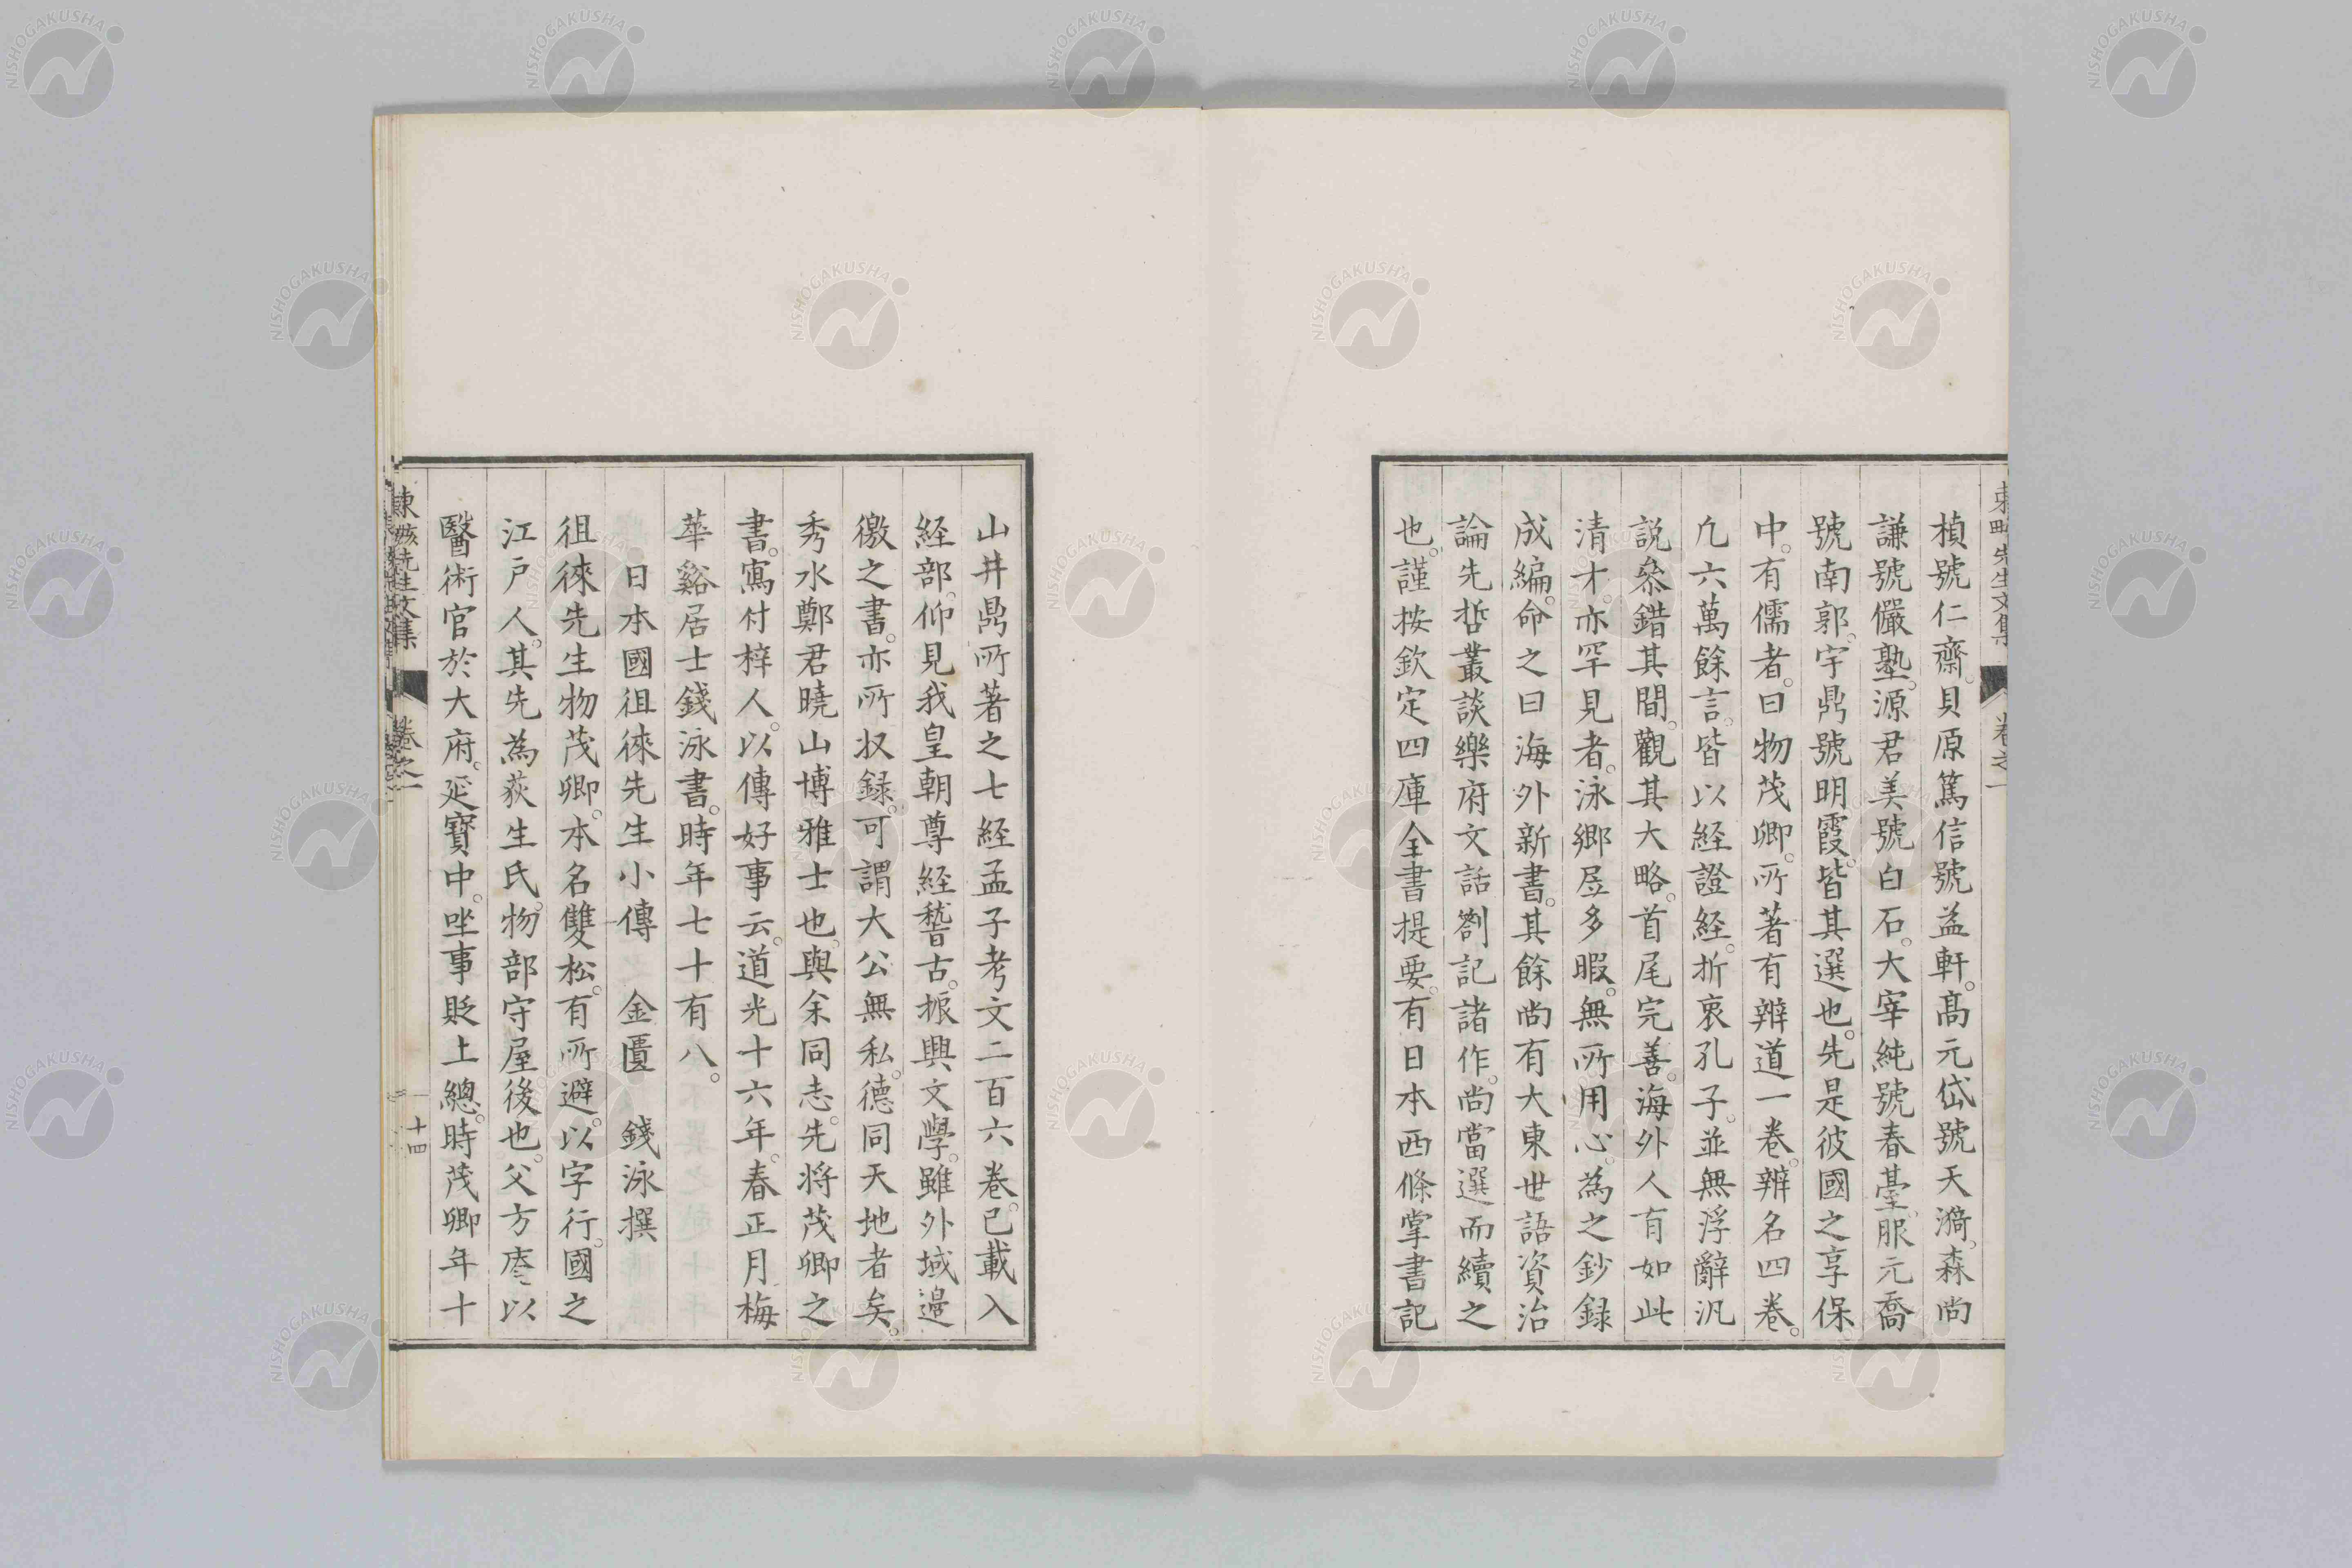 楨號仁齋。貝原篤信號益軒。高元岱號天漪。森尚
謙號儼塾。源君美號白石。大宰純號春臺。服元喬
號南郭。宇鼎號明霞。皆其選也。先是彼國之享保
中。有儒者。曰物茂卿。所著有辨道一卷。辨名四卷。
凢六萬餘言。皆以経證経。折衷孔子。並無浮辭汎
説叅錯其間。觀其大略。首尾完善。海外人有如此
清才。亦罕見者。泳郷居多暇。無所用心。為之鈔録
成編。命之曰海外新書。其餘尚有大東世語資治
論先哲叢談樂府文話劄記諸作。尚當選而續之
也。謹按欽定四庫全書提要。有日本西條掌書記
山井鼎所著之七経孟子考文二百六卷。已載入
経部。仰見我皇朝尊経誊古。振興文學。雖外域邉
徼之書。亦所収録。可謂大公無私。德同天地者矣。
秀水鄭君曉山博雅士也。與余同志。先将茂卿之
書。寫付梓人。以傳好事云。道光十六年。春正月梅
華谿居士錢泳書。時年七十有八。
日本國徂徠先生小傳 金匱 錢泳撰
徂徠先生物茂卿。本名雙松。有所避。以字行。國之
江戸人。其先為荻生氏。物部守屋後也。父方庵以
醫術官於大府。延寶中。坐事貶上總。時茂卿年十
東畡先生文集 卷之一 十四